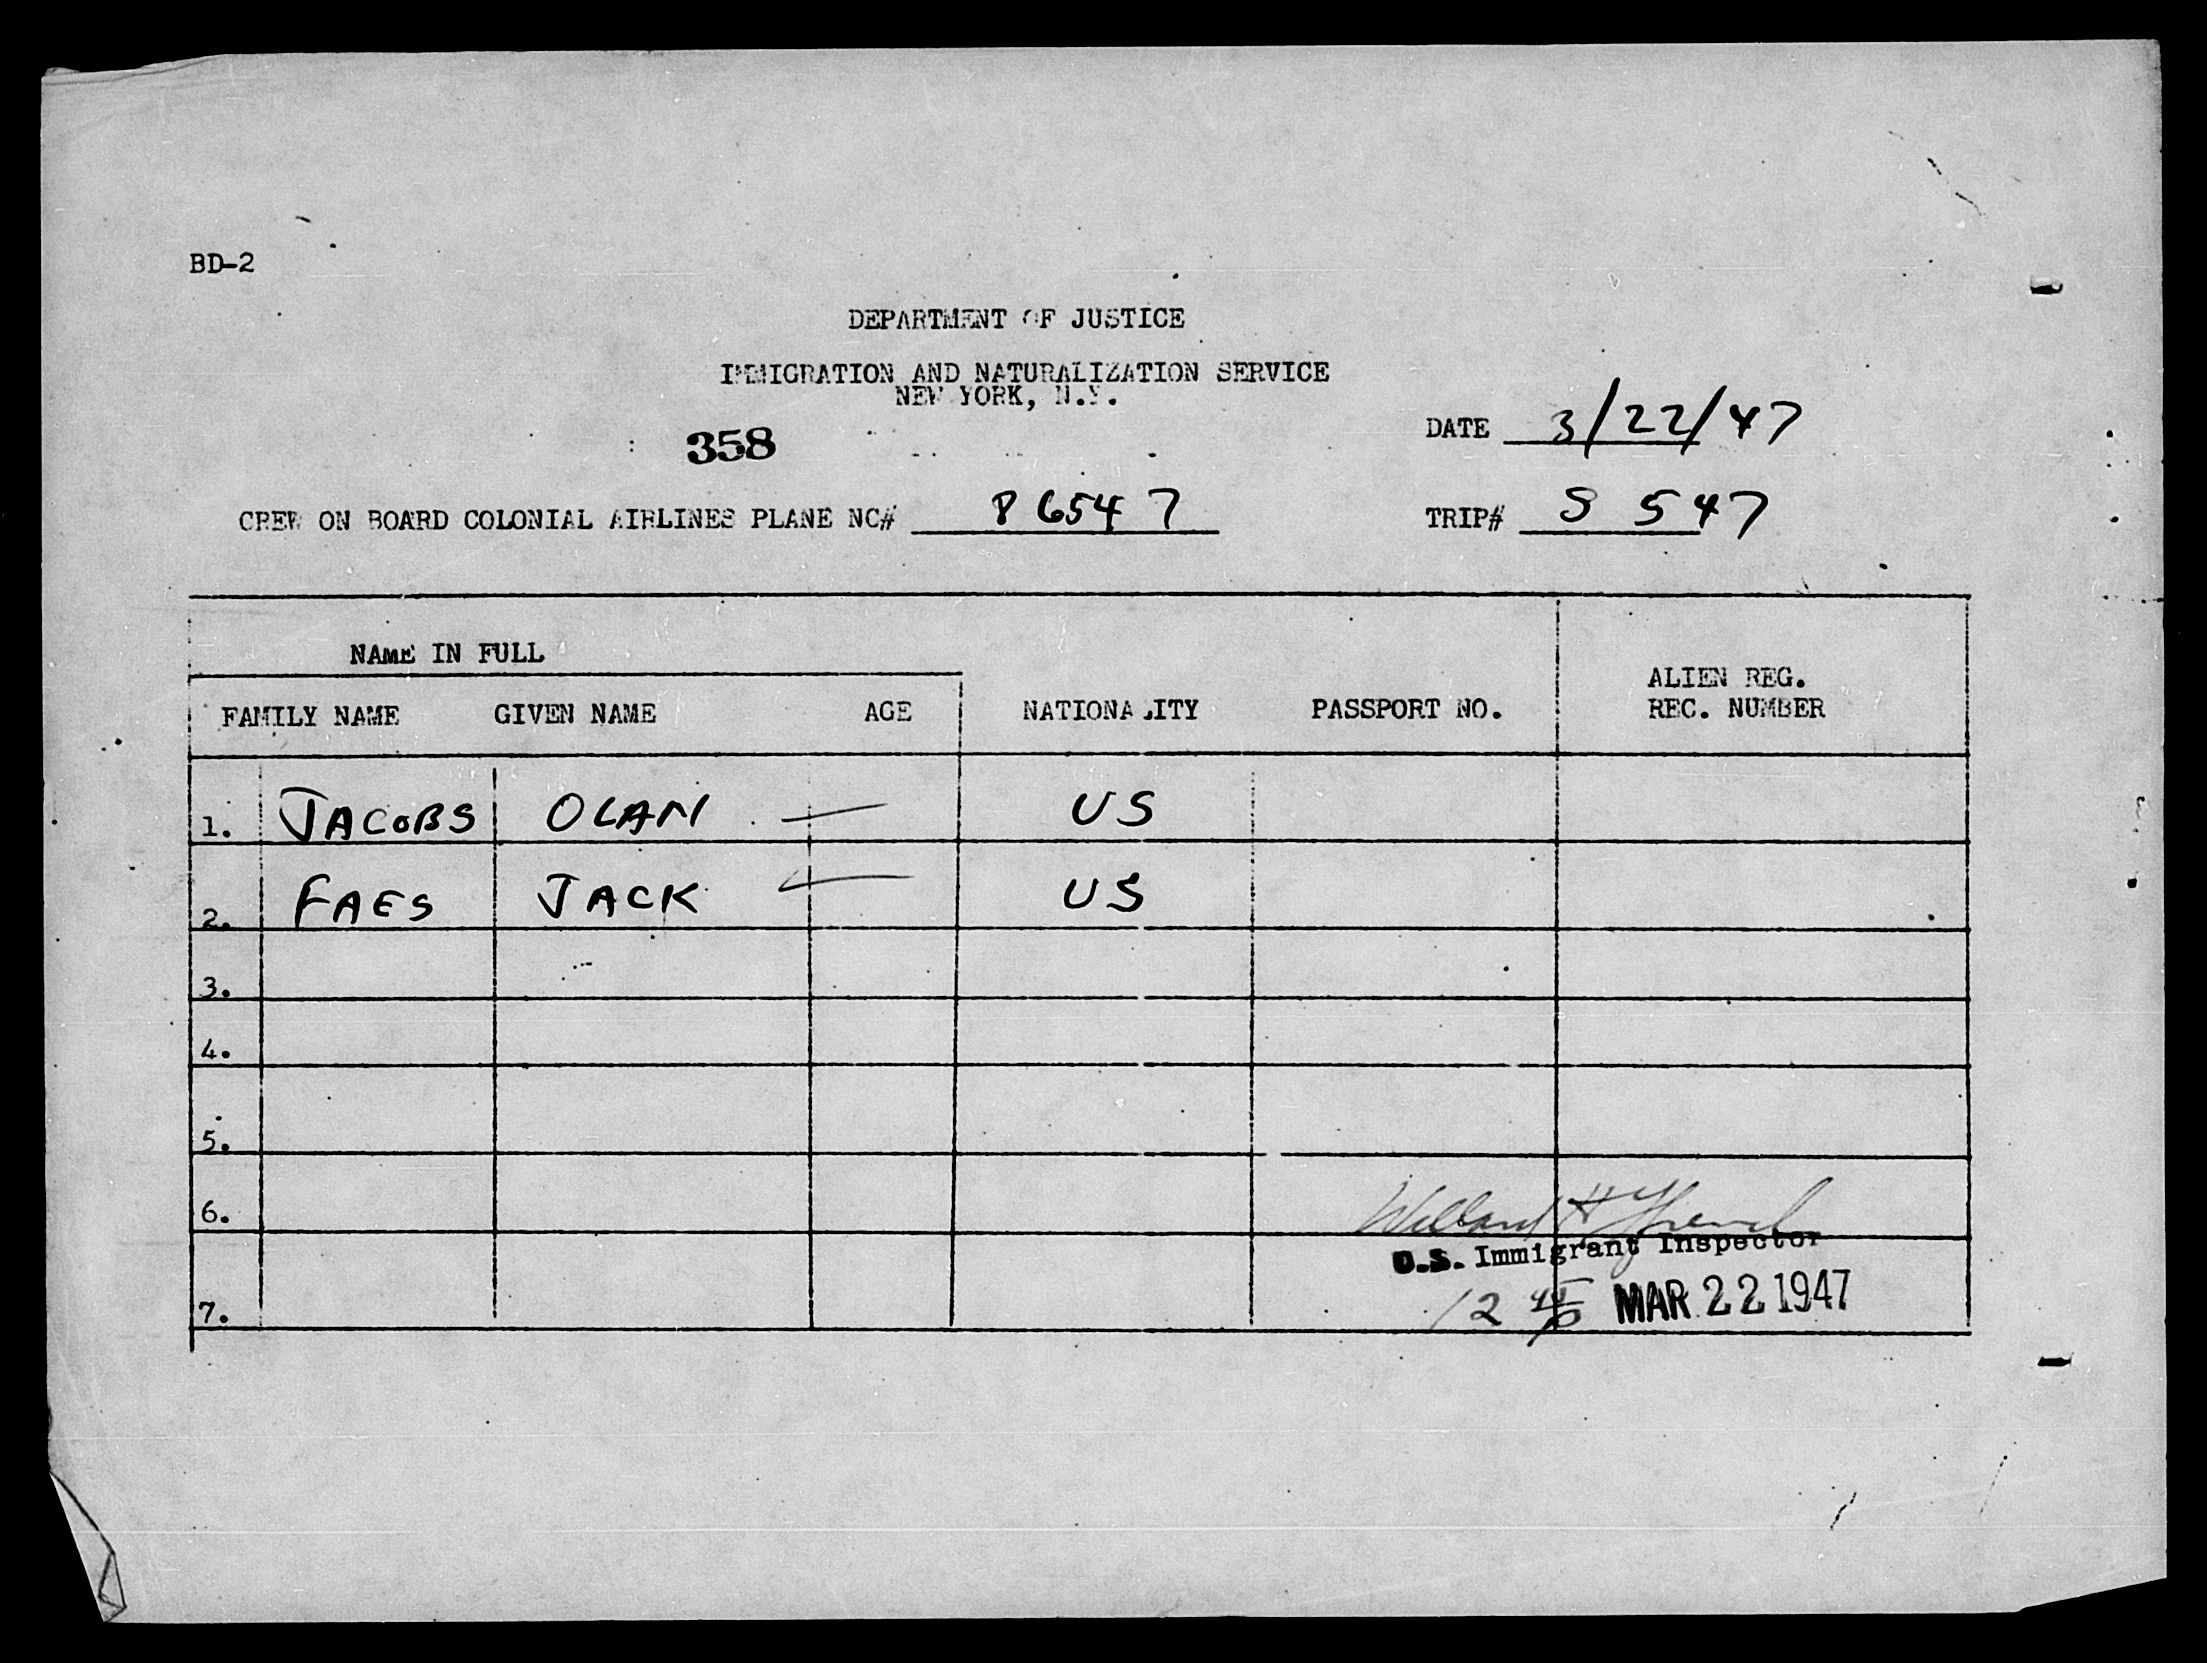 BD-2
DEPARTMENT OF JUSTICE
IMMIGRATION AND NATURALIZATION SERVICE
NEW YORK, N.Y.
DATE 3/22/47
358
CREW ON BOARD COLONIAL AIRLINES PLANE NC# 86547
TRIP# S 547
NAME IN FULL
FAMILY NAME GIVEN NAME AGE NATIONALITY PASSPORT NO. ALIEN REG. REC. NUMBER
1. JACOBS OLAN — US
2. FAES JACK — US
3.
4.
5.
6.
Willard H
U.S. Immigrant Inspector
7.
12 45 MAR 22 1947